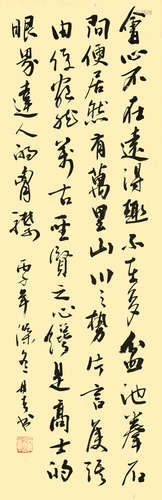 會心不在遠得趣不在多盆池拳石
間便居然有萬里山川之勢片言隻語
內便宛然萬古聖賢之心纔是高士的
眼界達人的胸襟 丙子年深冬書